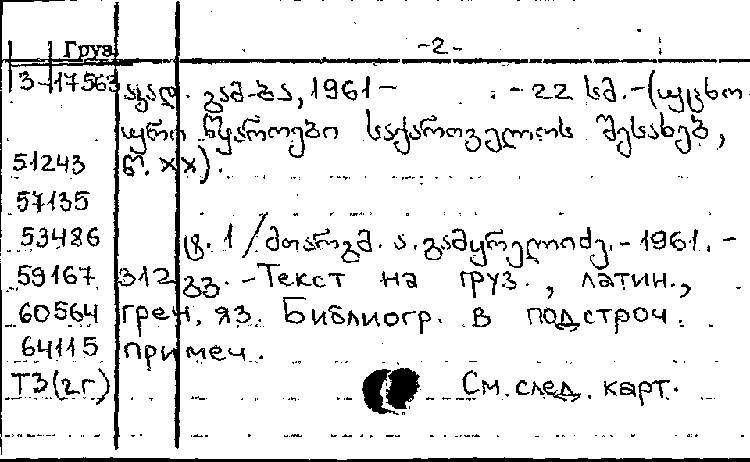 Груз. -2-
3-17563 აკად. გამ-ბა, 1961- . - 22 სმ. - (უცხო-
ური წყაროები საქართველოს შესახებ,
51243 წ. XX).
57135
53486 ც. 1 / მთარგმ. ა. გამყრელიძე. - 1961. -
59167 312 გვ. - Текст на груз., латин.,
60564 грен, яз. Библиогр. в подстроч.
64115 примеч.
ТЗ(2г) См. след. карт.